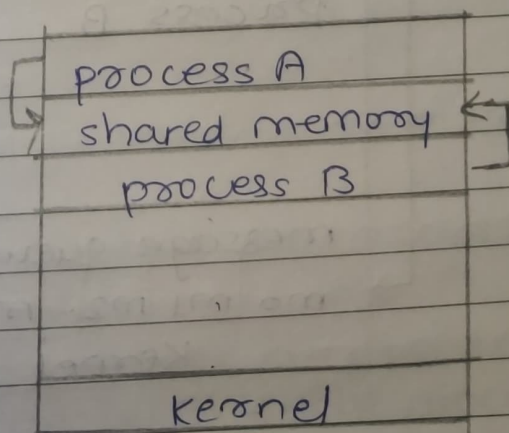 process A
shared memory
process B
kernel